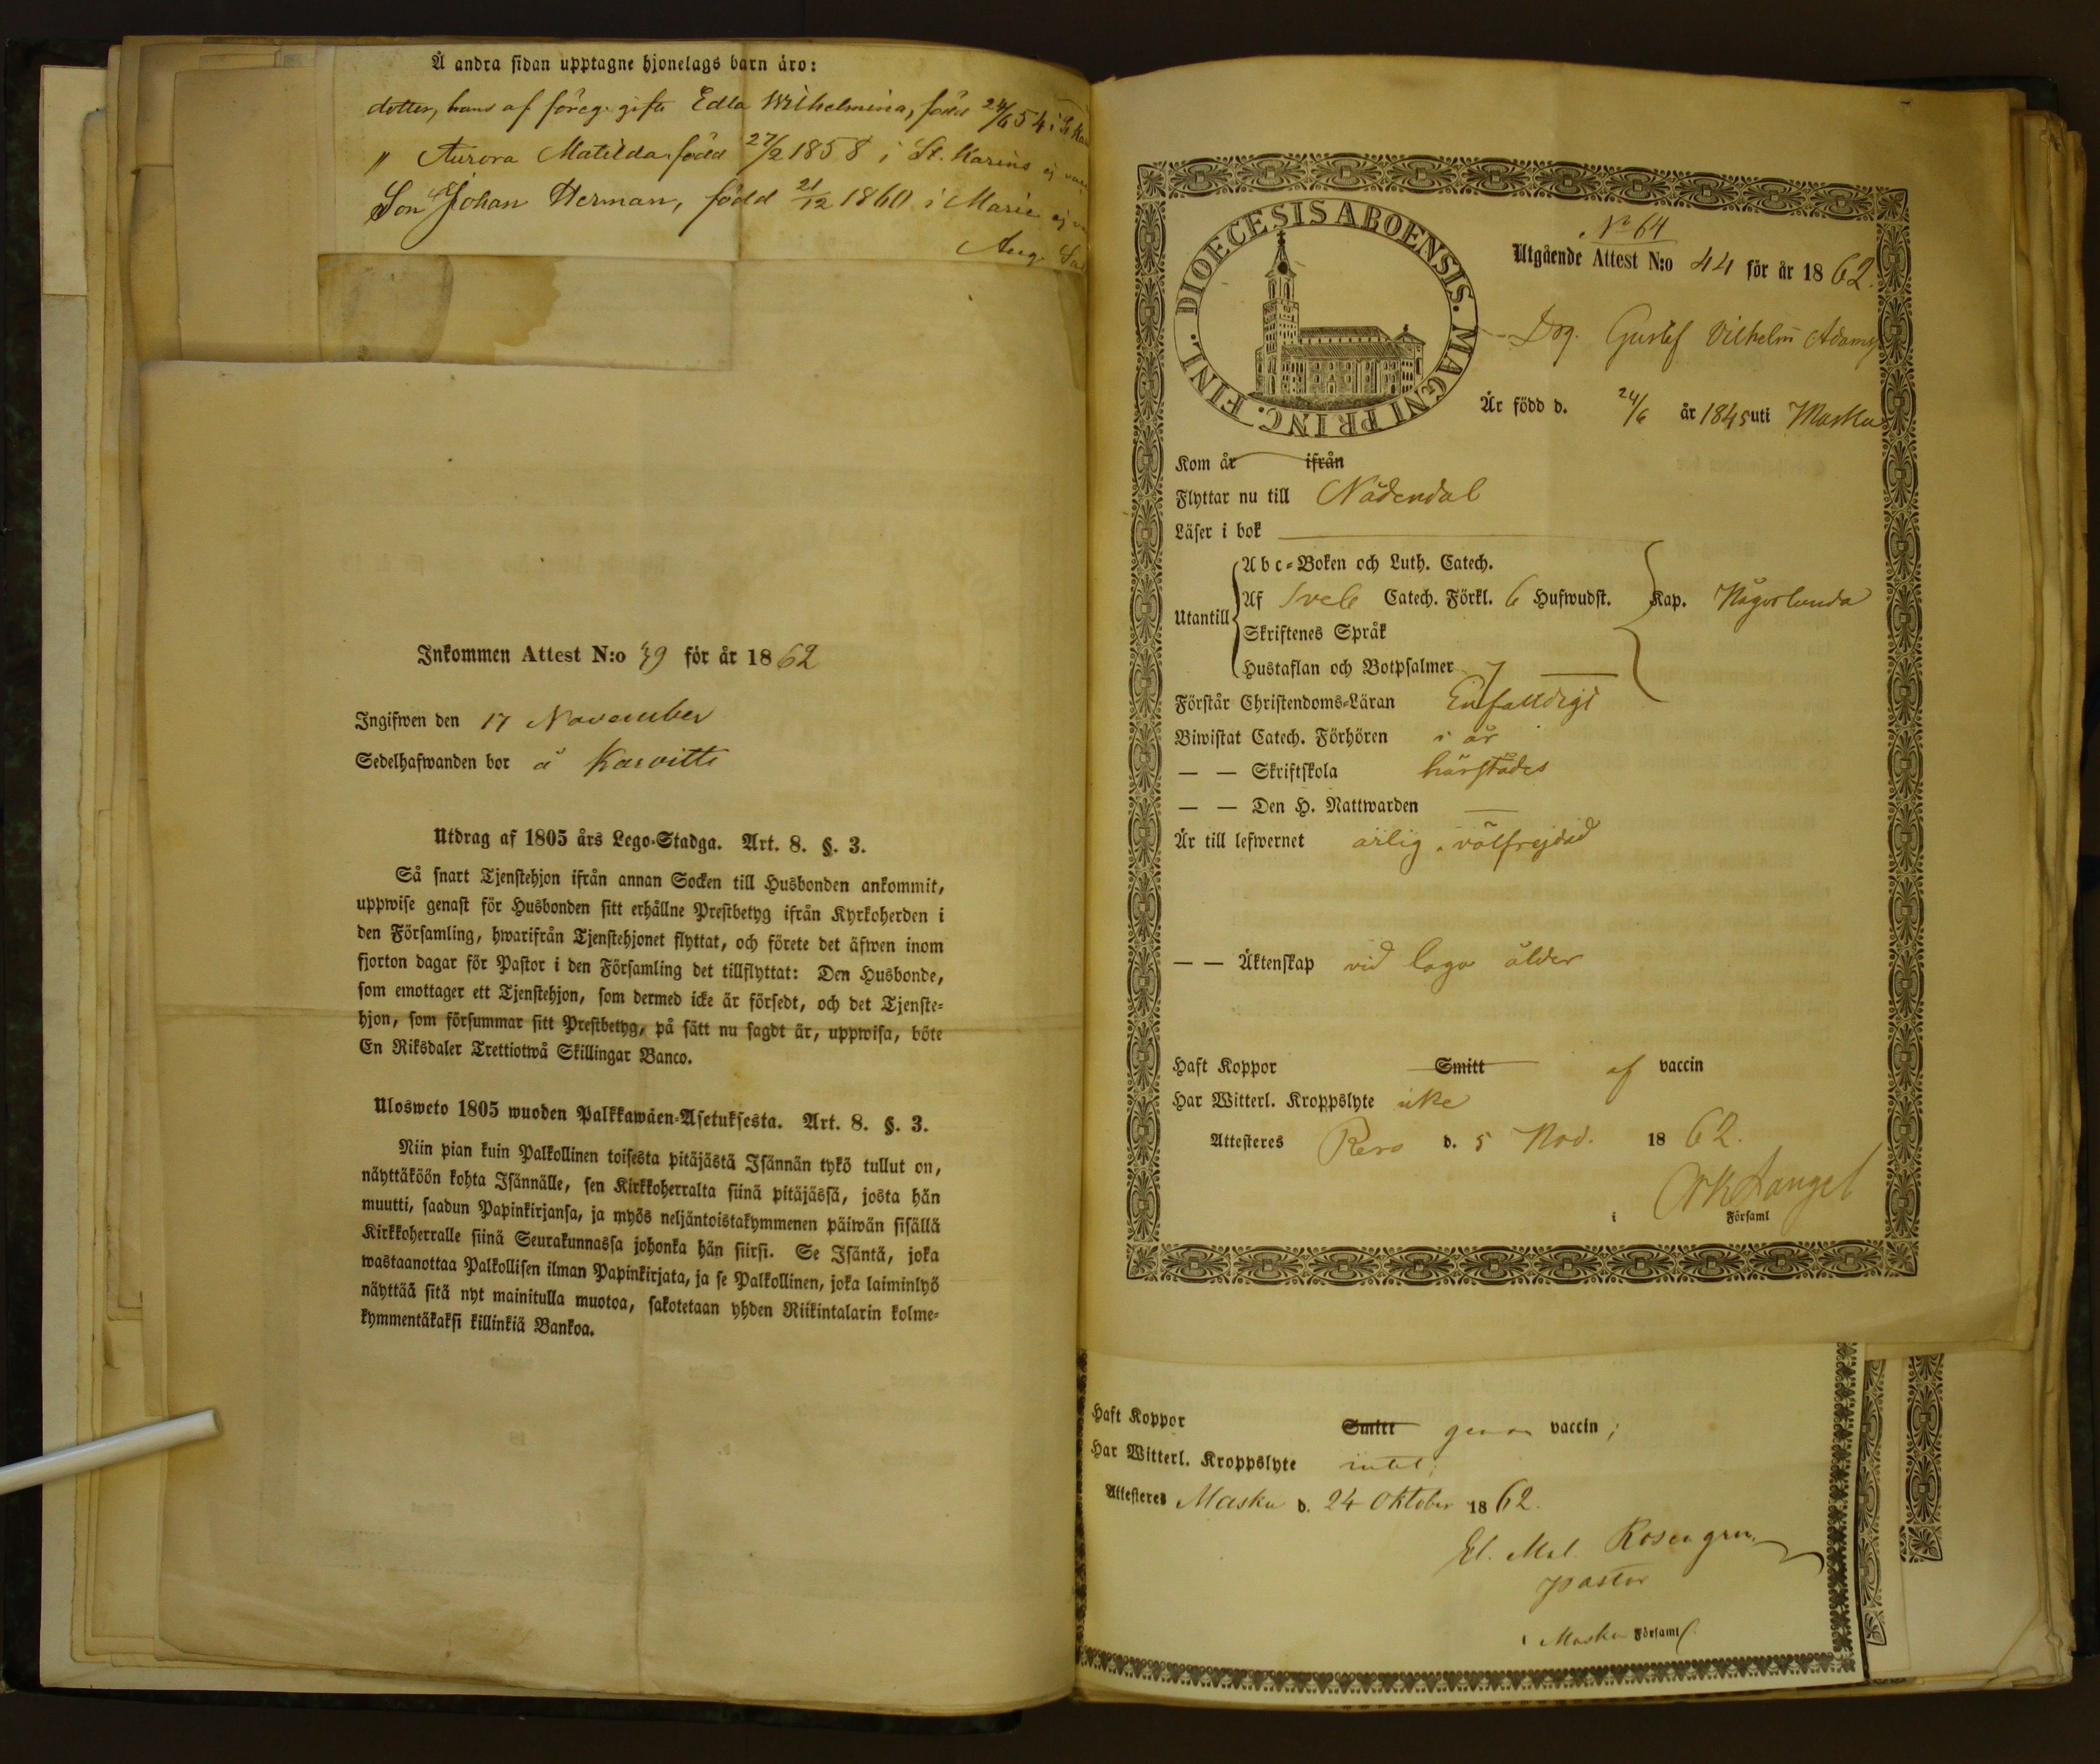 Å andra sidan upptagne hjonelags barn äro:
dotter, hans af föreg. gifte Edla Wilhelmina, född 24/6 54 i St Ka
" Aurora Matilda född 27/2 1858 i St. Karins ej
Son Johan Herman, född 21/12 1860 i Marie ej
Aug.
Inkommen Attest N:o 39 för år 1862
Ingifwen den 17 November
Sedelhafwanden bor å Karvitti
Utdrag af 1805 års Lego-Stadga. Art. 8. §. 3.
Så snart Tjenstehjon ifrån annan Socken till Husbonden ankommit,
uppwise genast för Husbonden sitt erhållne Prestbetyg ifrån Kyrkoherden i
den Församling, hwarifrån Tjenstehjonet flyttat, och förete det äfwen inom
fjorton dagar för Pastor i den Församling det tillflyttat: Den Husbonde,
som emottager ett Tjenstehjon, som dermed icke är försedt, och det Tjenste-
hjon, som försummar sitt Prestbetyg, på sätt nu sagdt är, uppwisa, böte
En Riksdaler Trettiotwå Skillingar Banco.
Ulosweto 1805 wuoden Palkkawäen-Asetuksesta. Art. 8. §. 3.
Niin pian kuin Palkollinen toisesta pitäjästä Isännän tykö tullut on,
näyttäköön kohta Isännälle, sen Kirkkoherralta siinä pitäjässä, josta hän
muutti, saadun Papinkirjansa, ja myös neljäntoistakymmenen päiwän sisällä
Kirkkoherralle siinä Seurakunnassa johonka hän siirsi. Se Isäntä, joka
wastaanottaa Palkollisen ilman Papinkirjata, ja se Palkollinen, joka laiminlyö
näyttää sitä nyt mainitulla muotoa, sakotetaan yhden Riikintalarin kolme-
kymmentäkaksi killinkiä Bankoa.
DIOECESIS ABOENSIS. MAGNI PRINC. FINL.
No 64
Utgående Attest N:o 44 för år 1862.
Drg. Gustef Vilhelm Adams
Är född d. 24/6 år 1845 uti Masku
Kom år ifrån
Flyttar nu till Nådendal
Läser i bok
Utantill
Abc-Boken och Luth. Catech.
Af Sveb Catech. Förkl. 6 Hufwudst. Kap. Någorlunda
Skriftenes Språk
Hustaflan och Botpsalmer
Förstår Christendoms-Läran Enfaldigt
Biwistat Catech. Förhören i år
— — Skriftskola härstädes
— — Den H. Nattwarden —
Är till lefwernet ärlig o. välfrejdad
— — Äktenskap vid laga ålder
Haft Koppor Smitt af vaccin
Har Witterl. Kroppslyte icke
Attesteres Reso d. 5 Nov. 1862.
i Församl
Haft Koppor Smitt genom vaccin;
Har Witterl. Kroppslyte intet;
Attesteres Masku d. 24 Oktober 1862.
Rosengren
pastor
i Masku Församl.